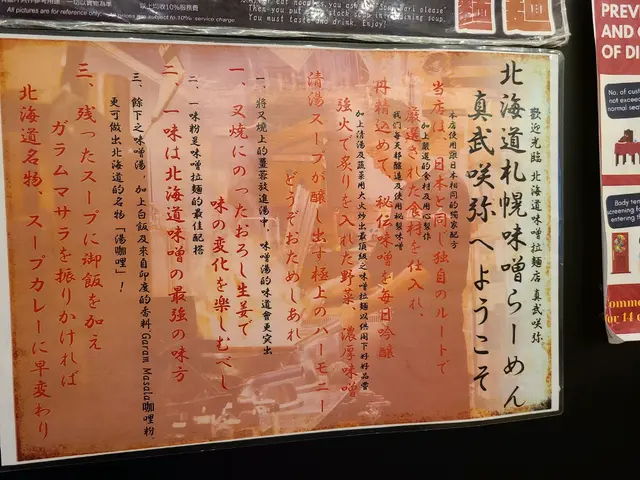 以上均收10%服務費
All pictures are for reference only.
subject to 10% service charge.
You must taste and drink. Enjoy!
歡迎光臨 北海道味噌拉麵店 真武咲弥
北海道札幌味噌らーめん
真武咲弥へようこそ
本店使用跟日本相同的獨家配方
当店は、日本と同じ独自のルートで
加上嚴選的食材及用心製作
厳選された食材を仕入れ、
我們每天都釀造及使用秘製味噌
丹精込めて、秘伝味噌を毎日吟醸
加上清湯及蔬菜用大火炒出最頂級之味噌拉麵以供閣下好好品嘗
強火で炙りを入れた野菜、濃厚味噌
清湯スープが醸し出す極上のハーモニー
どうぞおためしあれ
一、將叉燒上的薑蓉放進湯中，味噌湯的味道會更突出
一、叉焼にのったおろし生姜で
味の変化を楽しむべし
二、一味粉是味噌拉麵的最佳配搭
二、一味は北海道味噌の最強の味方
三、餘下之味噌湯，加上白飯及來自印度的香料Garam Masala咖哩粉，
更可做出北海道的名物「湯咖哩」！
三、残ったスープに御飯を加え
ガラムマサラを振りかければ
北海道名物、スープカレーに早変わり
PREV
AND C
OF DI
No. of cust
not exceed
normal sea
Body tem
screening fo
entering t
for 14 d